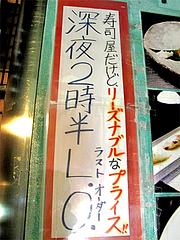 寿司屋だけど、リーズナブルなプライス!!
深夜2時半L.O.
ラストオーダー